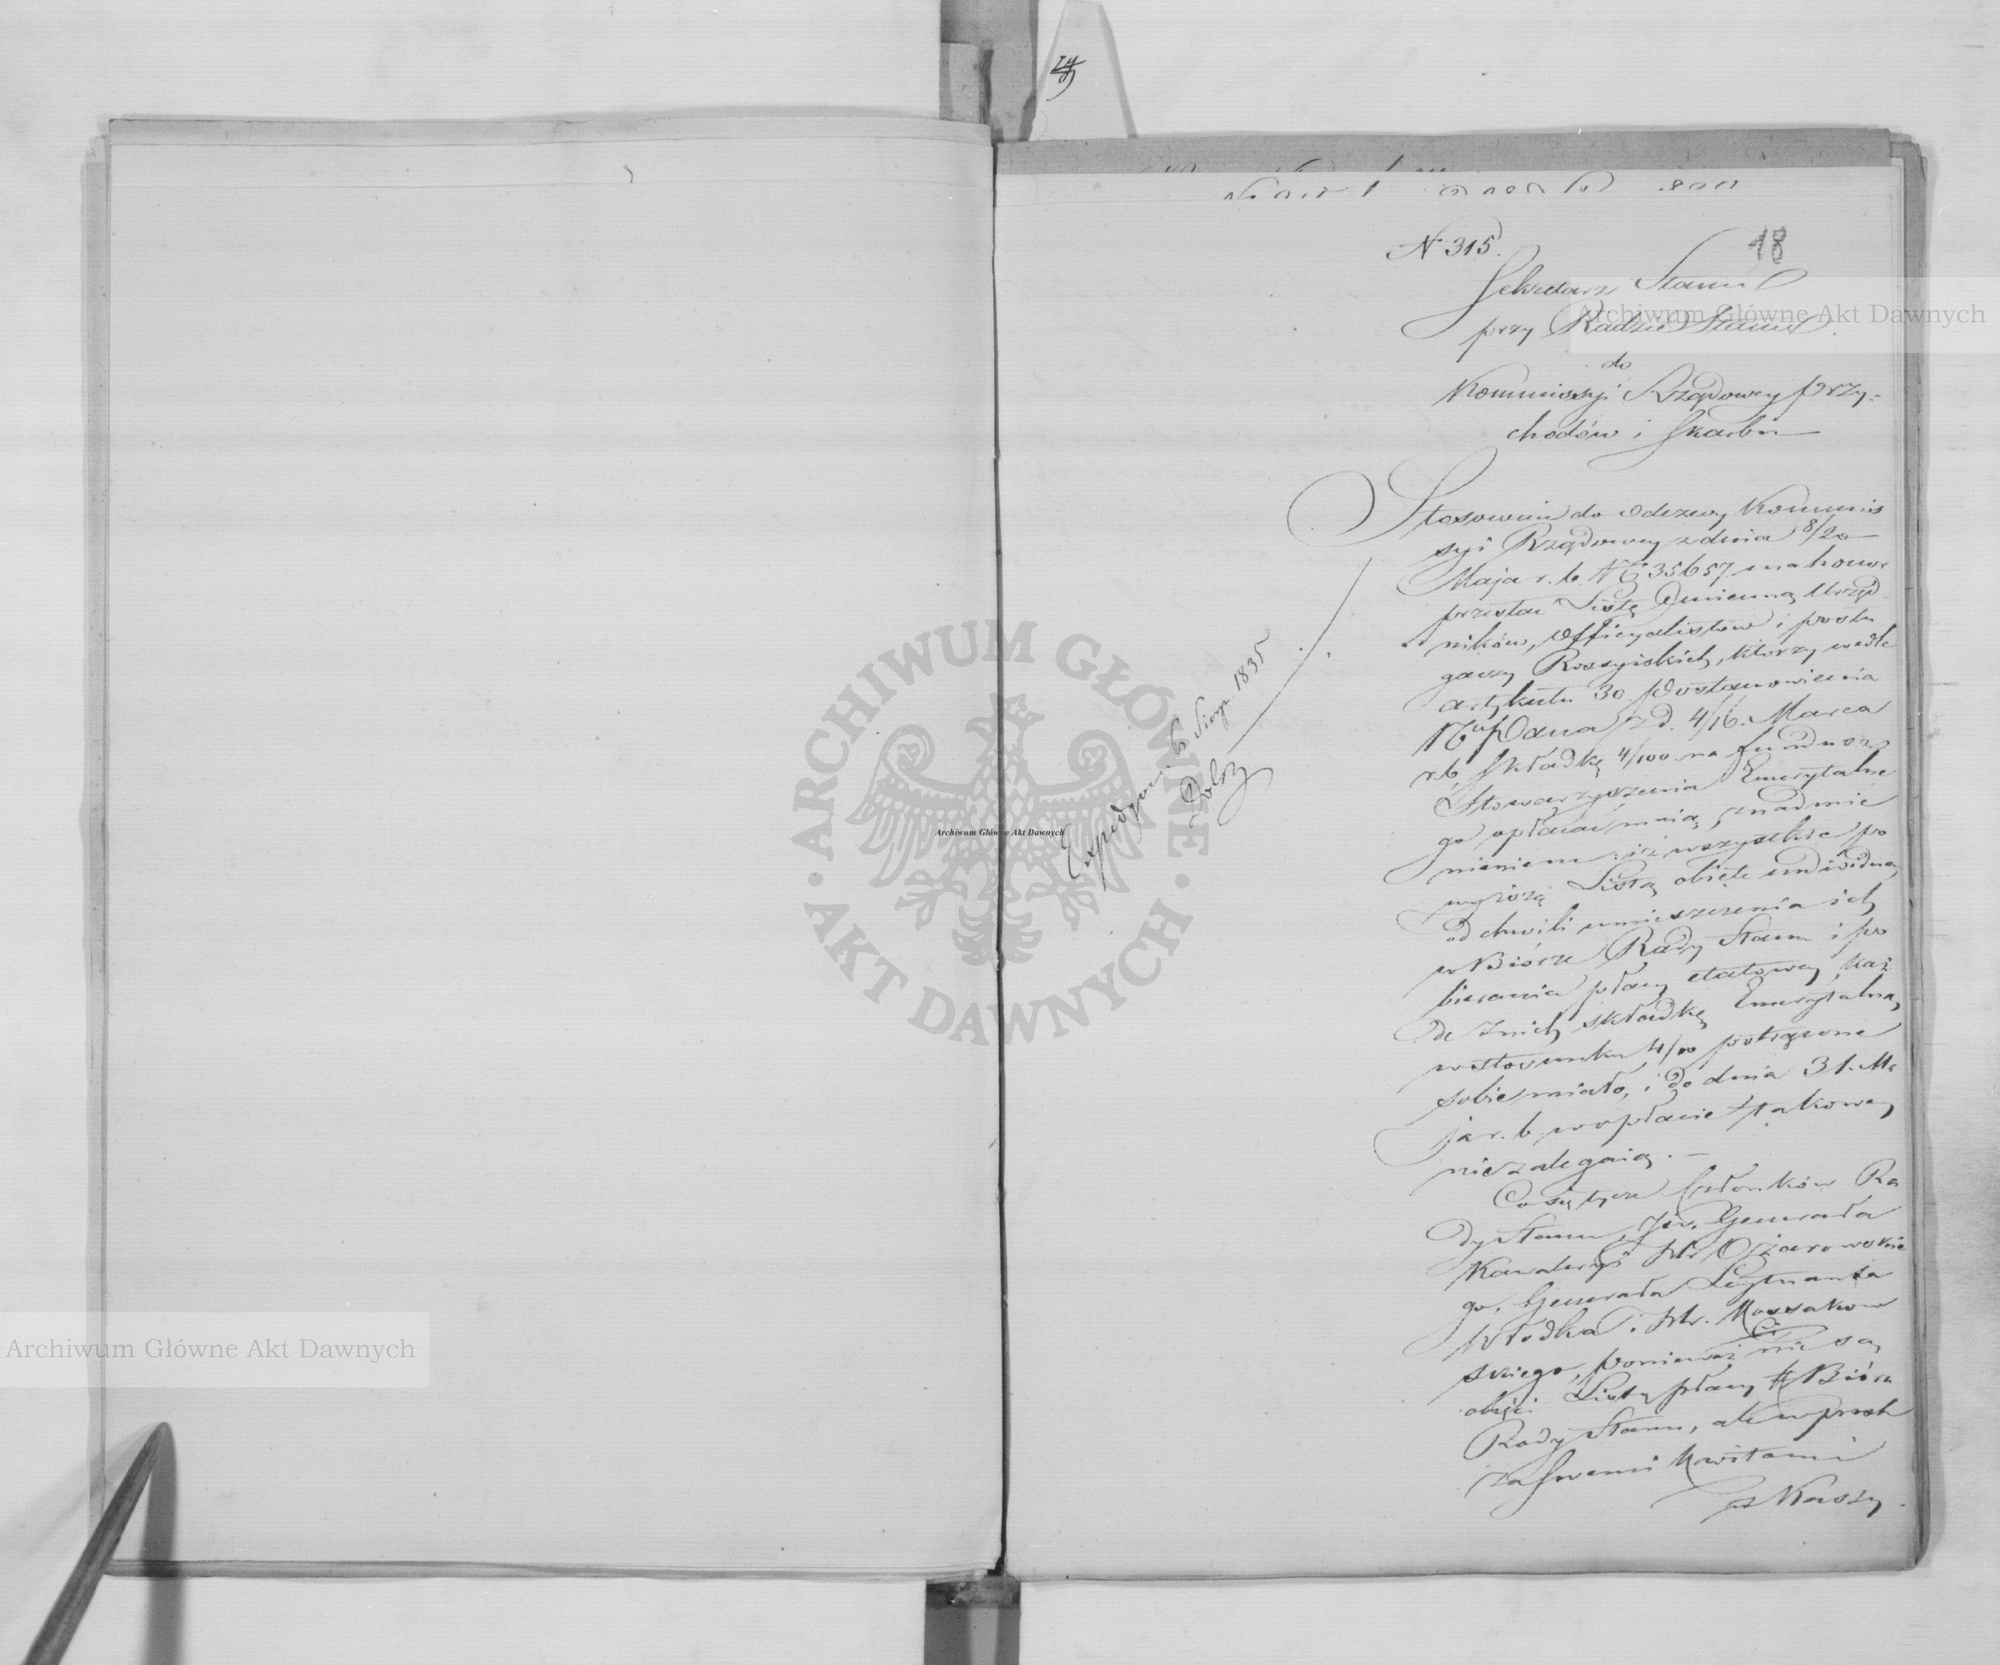 18
N 315.
Sekretarz Stanu
przy Radzie Stanu
do
Kommissyi Rządowey Przy-
chodów i Skarbu
Stosownie do odezwy Kommis
syi Rządowey z dnia 8/20
Maja r. b. N 35657. ma honor
przesłać Listę Imienną Urzęd
ników, Officyalistów i posłu
gaczy Rossyiskich, którzy wedle
artykułu 30 Postanowienia
Pana z d. 4/16. Marca
r. b. Składkę 4/100 na fundusz
Stowarzyszenia Emerytalne
go opłacać maią, z nadmie
nieniem: iż wszystkie po
wyższą Listą obięte indiwidua,
od chwili umieszczenia ich
w Biórze Rady Stanu i po
bierania płacy etatowey, każ
de z nich składkę Emerytalną
w stosunku 4/100 potrącone
sobie miało, i do dnia 31. Ma
ja r. b. w opłacie takowey
nie zalegaią. —
Co się tycze Członków Ra
dy Stanu, JW. Generała
Kawaleryi Hr Ożarowskie
go, Generała Leytnanta
Włodka i Hr. Mossakow
skiego, ponieważ ci nie są
obięci Listą płacy Bióra
Rady Stanu, ale wprost
za swemi kwitami
z Kassy
Expedyow. 6 Sierp. 1835
Archiwum Główne Akt Dawnych
Archiwum Główne Akt Dawnych
Archiwum Główne Akt Dawnych
ARCHIWUM GŁÓWNE
AKT DAWNYCH